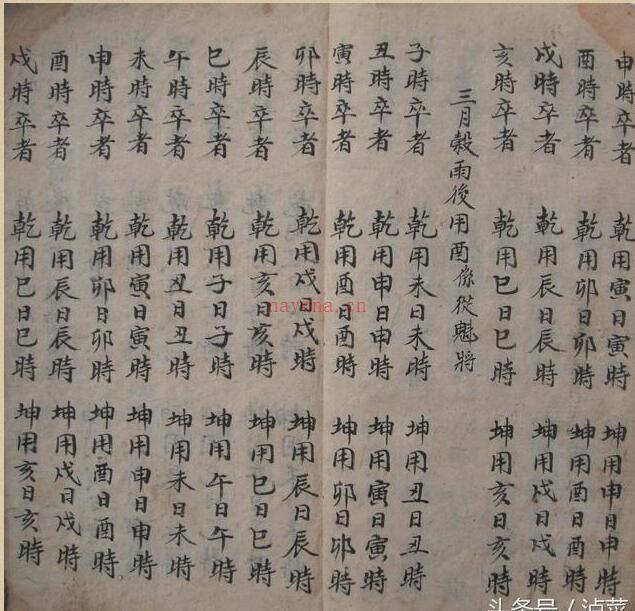 申時卒者 乾用寅日寅時 坤用申日申時
酉時卒者 乾用卯日卯時 坤用酉日酉時
戌時卒者 乾用辰日辰時 坤用戌日戌時
亥時卒者 乾用巳日巳時 坤用亥日亥時
三月穀雨後用酉係從魁將
子時卒者 乾用未日未時 坤用丑日丑時
丑時卒者 乾用申日申時 坤用寅日寅時
寅時卒者 乾用酉日酉時 坤用卯日卯時
卯時卒者 乾用戌日戌時 坤用辰日辰時
辰時卒者 乾用亥日亥時 坤用巳日巳時
巳時卒者 乾用子日子時 坤用午日午時
午時卒者 乾用丑日丑時 坤用未日未時
未時卒者 乾用寅日寅時 坤用申日申時
申時卒者 乾用卯日卯時 坤用酉日酉時
酉時卒者 乾用辰日辰時 坤用戌日戌時
戌時卒者 乾用巳日巳時 坤用亥日亥時
nayona.cn
头条号 /